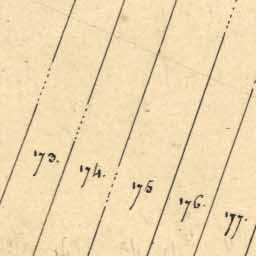 173.
174.
175
176.
177.